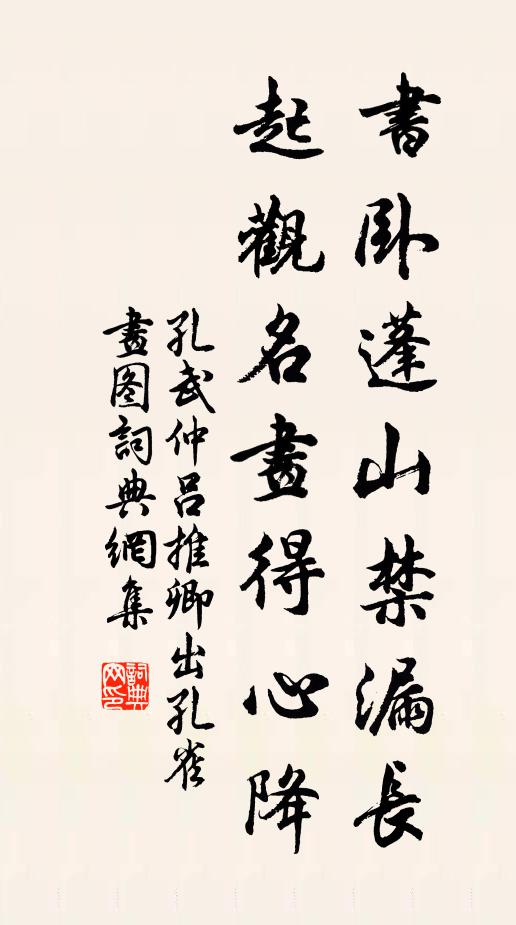 書卧蓬山禁漏長
起觀名畫得心降
孔武仲呂推卿出孔雀
畫图詞典網集
詞典网印